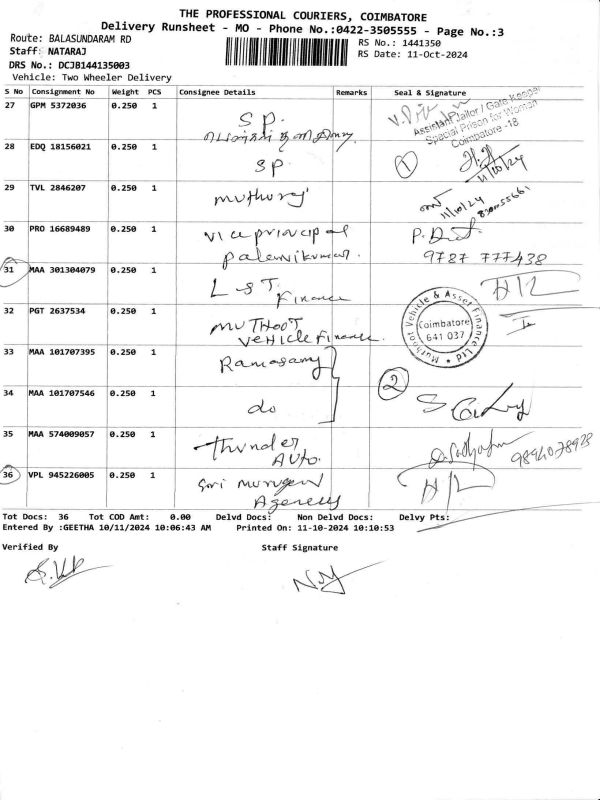 THE PROFESSIONAL COURIERS, COIMBATORE
Delivery Runsheet - MO - Phone No.:0422-3505555 - Page No.:3
Route: BALASUNDARAM RD
RS No.: 1441350
Staff: NATARAJ
RS Date: 11-Oct-2024
DRS No.: DCJB144135003
Vehicle: Two Wheeler Delivery
S No Consignment No Weight PCS Consignee Details Remarks Seal & Signature
27 GPM 5372036 0.250 1 S P.
Assistant Jailor / Gate Keeper
Special Prison for Women
Coimbatore -18
28 EDQ 18156021 0.250 1 SP 1 11/10/24
29 TVL 2846207 0.250 1 muthuraj 11/10/24
30 PRO 16689489 0.250 1 vice principal
palanikumar. 9787 777438
31 MAA 301304079 0.250 1 L & T. H/L
Finance
32 PGT 2637534 0.250 1 MUTHOOT
VEHICLE Finance.
Muthoot Vehicle & Asset Finance Ltd
Coimbatore
641 037
33 MAA 101707395 0.250 1 Ramasamy
34 MAA 101707546 0.250 1 do 2
35 MAA 574009057 0.250 1 Thunder
AUTO. 9894078928
36 VPL 945226005 0.250 1 Sri Murugan H/L
Agencies
Tot Docs: 36 Tot COD Amt: 0.00 Delvd Docs: Non Delvd Docs: Delvy Pts:
Entered By :GEETHA 10/11/2024 10:06:43 AM Printed On: 11-10-2024 10:10:53
Verified By Staff Signature